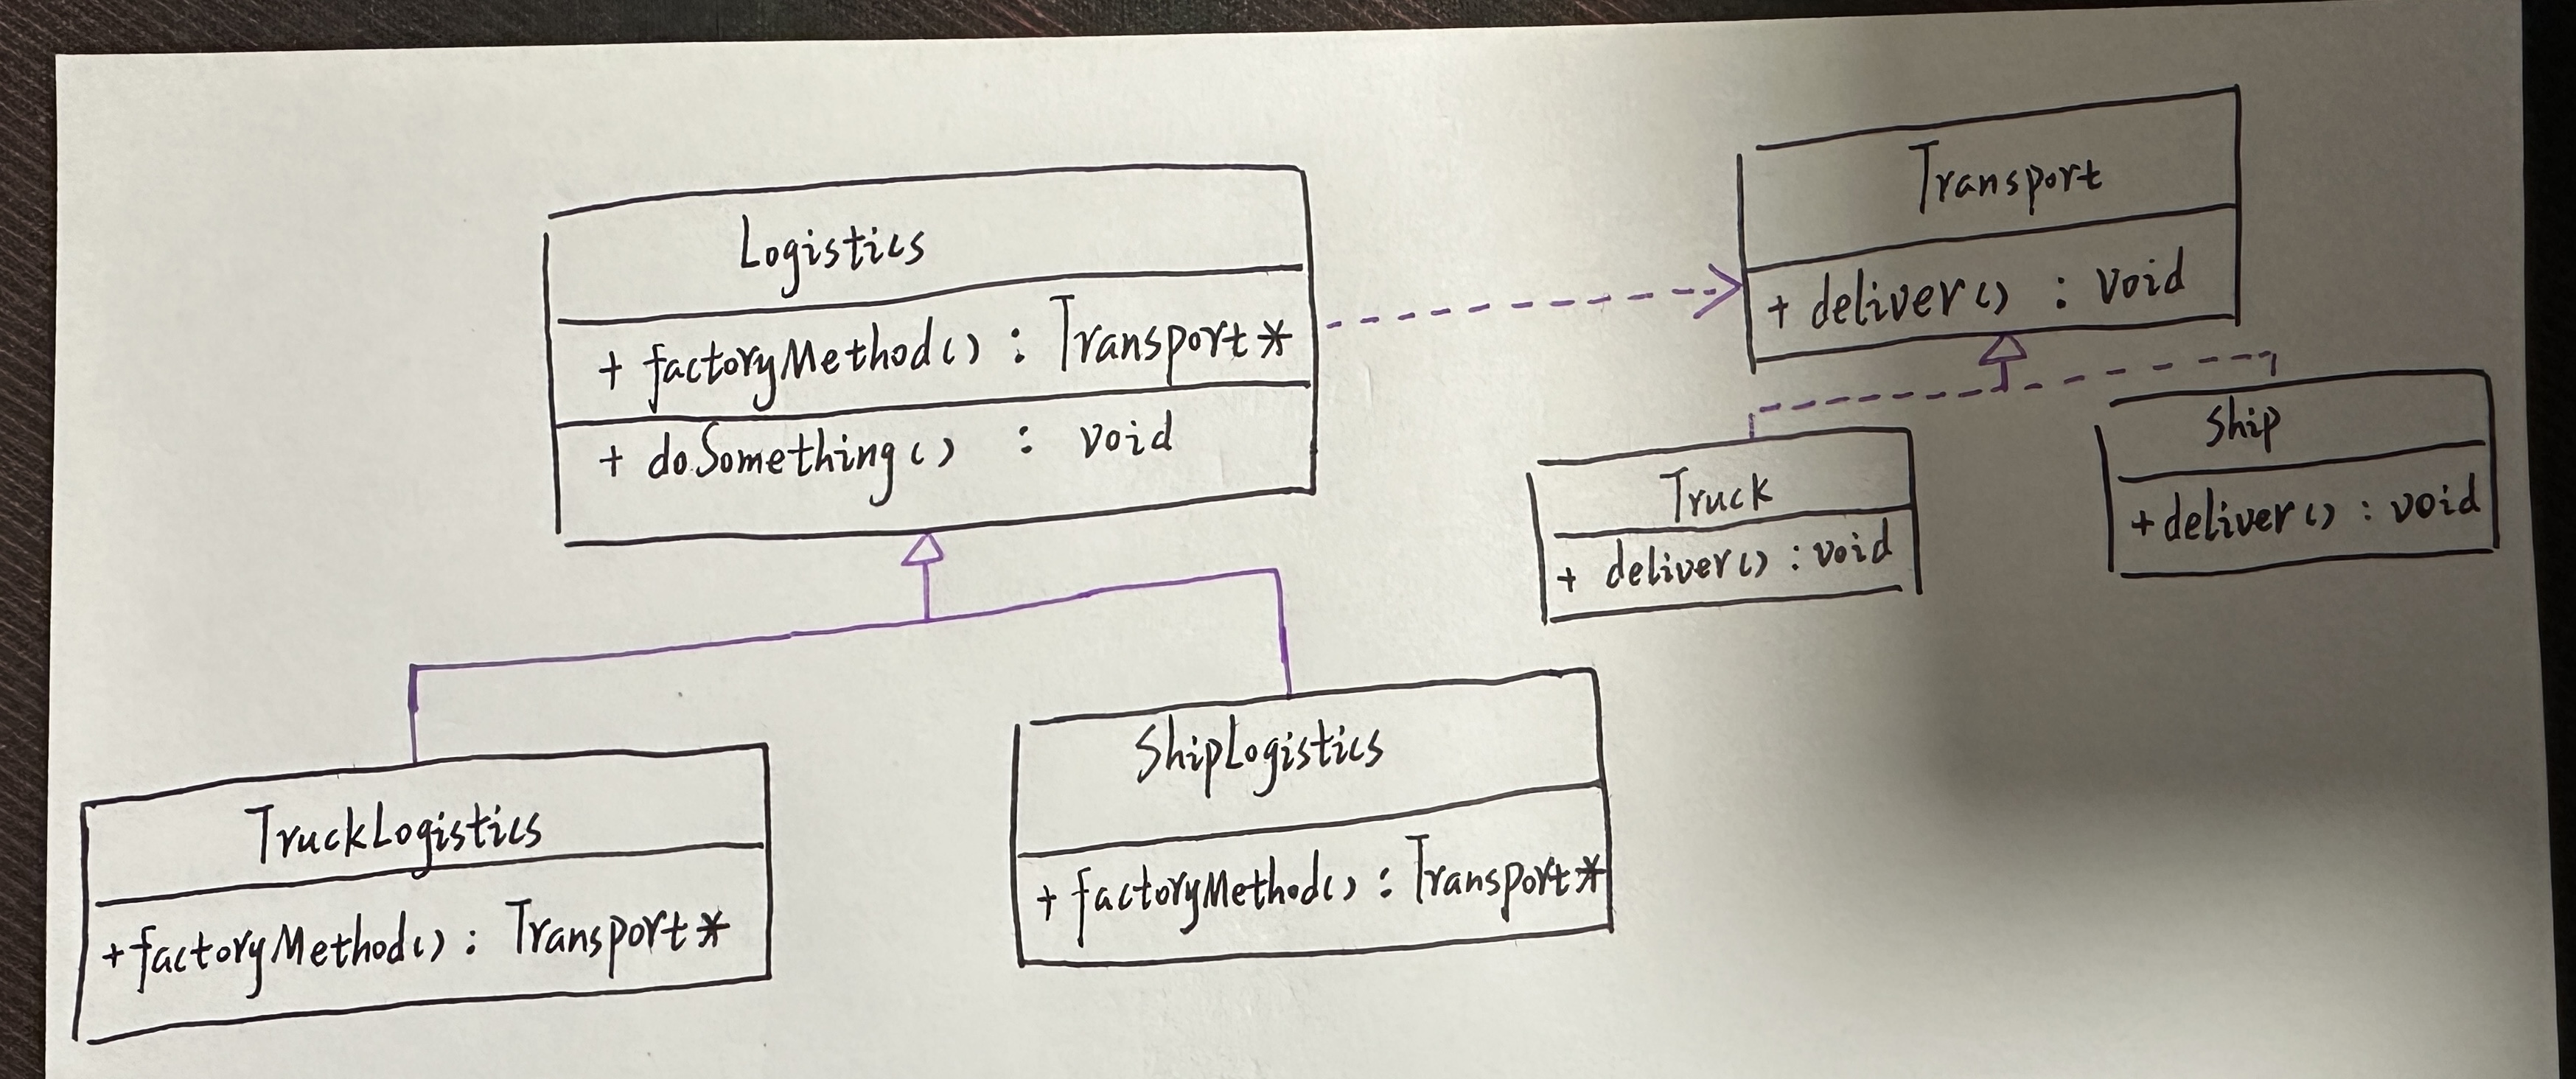 Logistics
+ factoryMethod() : Transport*
+ doSomething() : void
Transport
+ deliver() : void
Truck
+ deliver() : void
Ship
+ deliver() : void
TruckLogistics
+ factoryMethod() : Transport*
ShipLogistics
+ factoryMethod() : Transport*